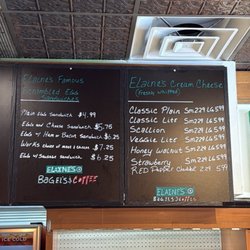 Elaine's Famous
Scrambled Egg
Sandwiches
Plain Egg Sandwich $4.99
Egg and Cheese Sandwich $5.75
Egg + Ham or Bacon Sandwich $6.25
Works choice of meat & cheese $7.25
Egg + Sausage Sandwich $6.25
ELAINE'S
BAGELS & COFFEE
Elaine's Cream Cheese
(Freshly Whipped)
Classic Plain Sm 2.29 LG 5.99
Classic Lite Sm 2.29 LG 5.99
Scallion Sm 2.29 LG 5.99
Veggie Lite Sm 2.29 LG 5.99
Honey Walnut Sm 2.29 LG 5.99
Strawberry Sm 2.29 LG 5.99
RED 2.29 5.99
ELAINE'S
BAGELS & COFFEE
ICE COLD